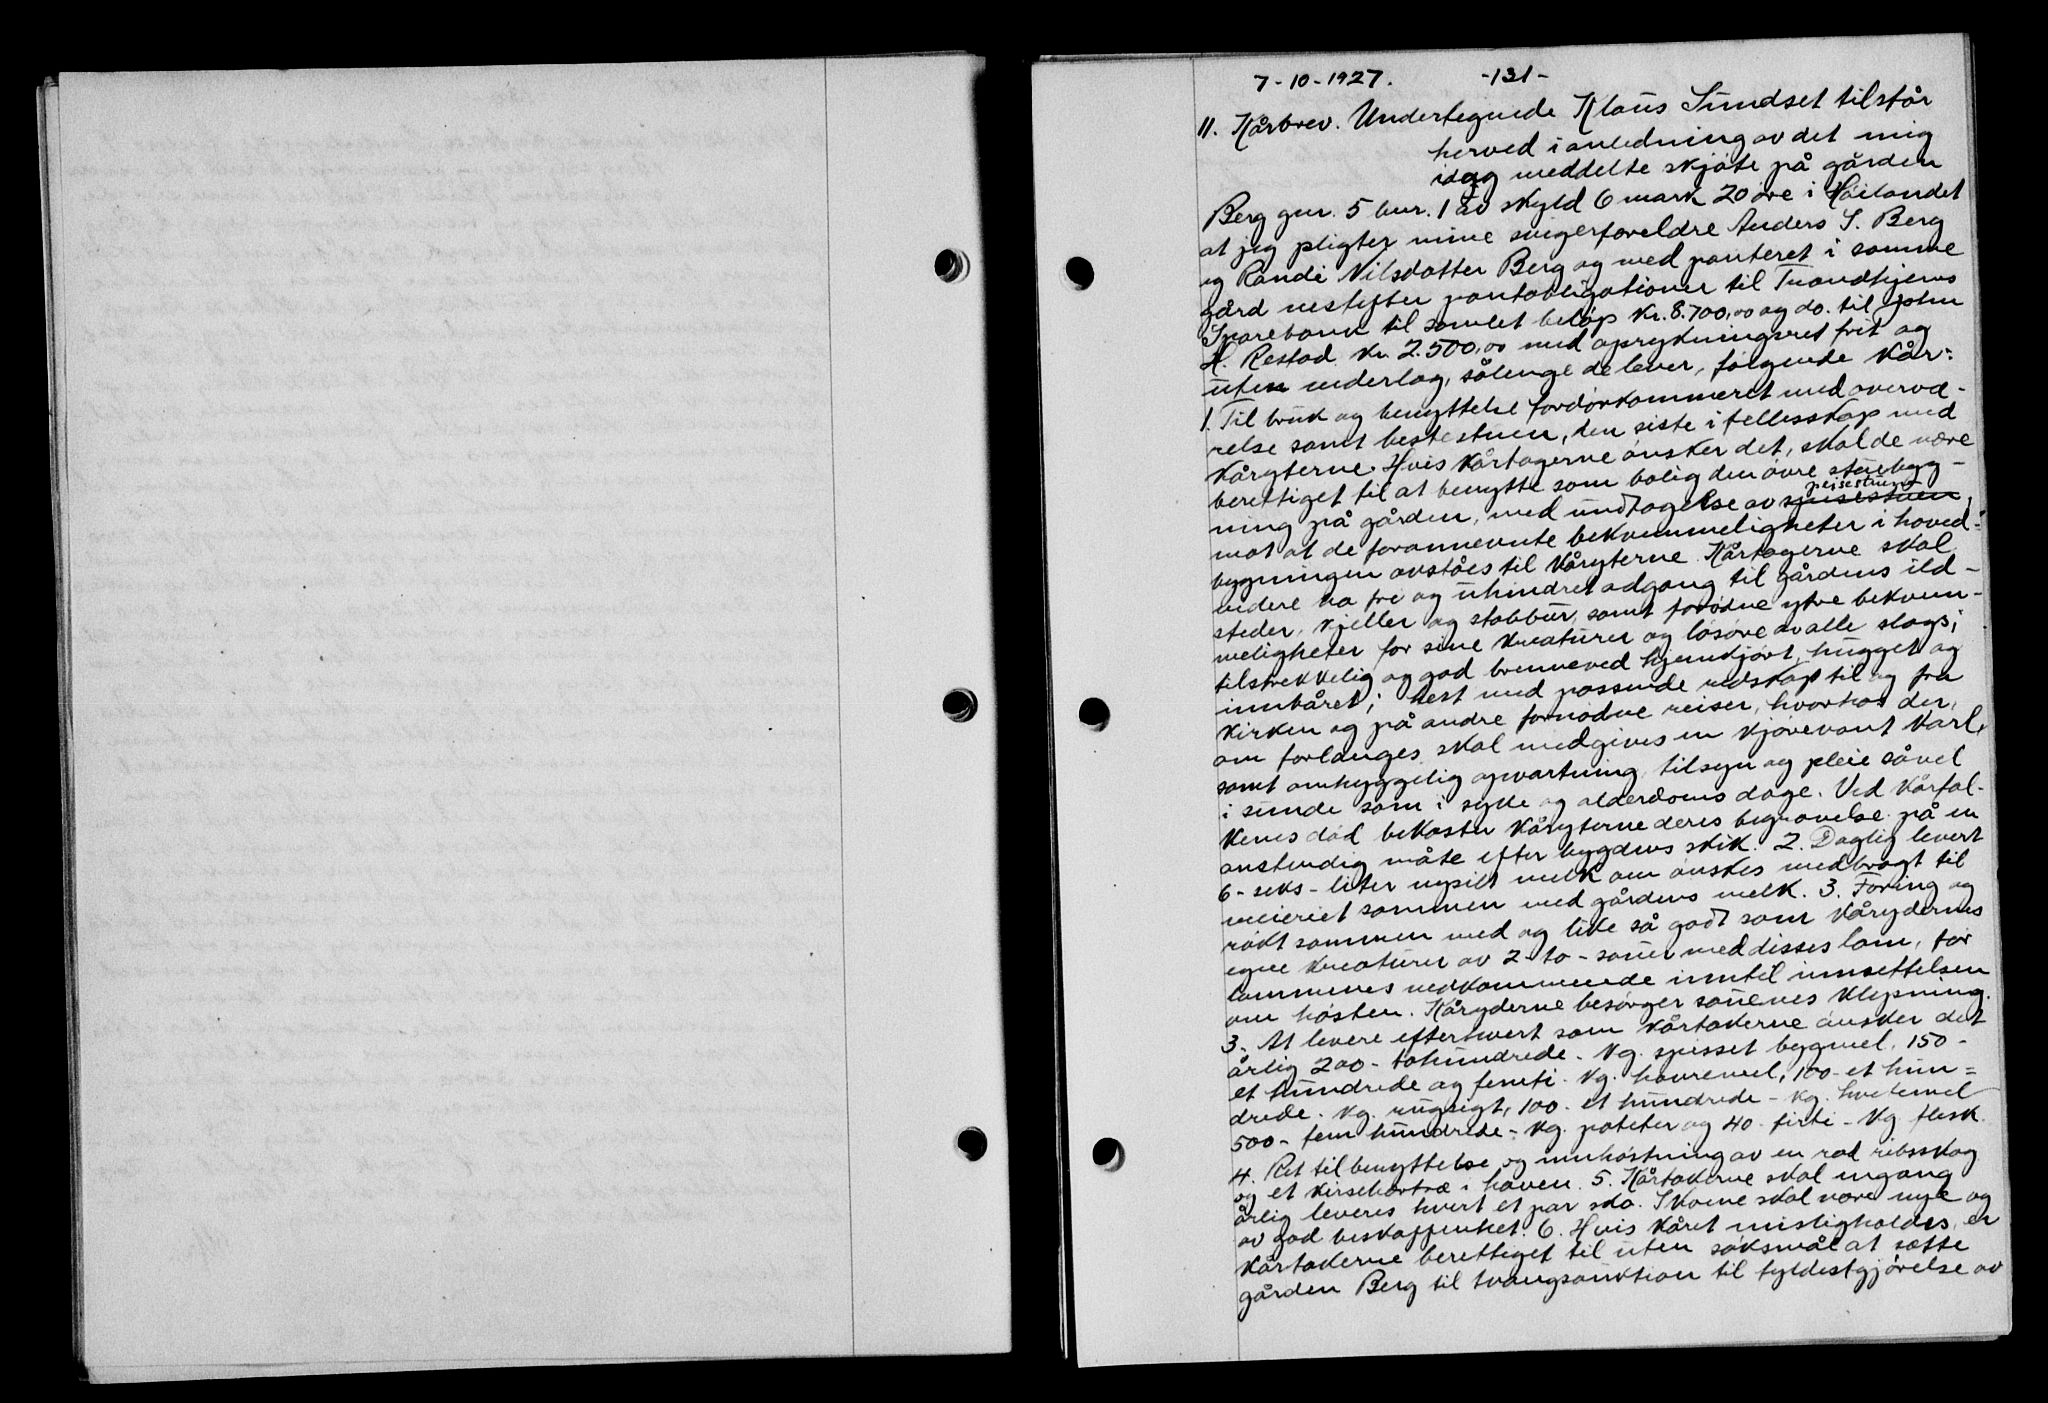 7-10-1927. -131-
11. Kårbrev. Undertegnede Klaus Sundset tilstår
herved i anledning av det mig
idag meddelte skjøte på gården
Berg gnr. 5 bnr. 1 av skyld 6 mark 20 øre i Høilandet
at jeg pligter mine svigerforeldre Anders S. Berg
og Randi Nilsdatter Berg og med panteret i samme
gård nestefter pantobligationer til Trondhjems
Sparebank til samlet beløp kr. 8.700,00 og do. til John
H. Restad kr. 2.500,00 med oprykningsret frit og
uten vederlag, sålenge de lever, følgende kår:
1. Til bruk og benyttelse fordørkammeret med overvæ-
relse samt bestestuen, den siste i fellesskap med
kåryterne. Hvis kårtagerne ønsker det, skal de være
berettiget til at benytte som bolig den øvre stuebyg-
ning på gården, med undtagelse av spisestuen peisestuen,
mot at de forannevnte bekvemmeligheter i hoved-
bygningen avståes til kåryterne. Kårtagerne skal
videre ha fri og uhindret adgang til gårdens ild-
steder, kjeller og stabbur, samt fornødne ytre bekvem-
meligheter for sine kreaturer og løsøre av alle slags;
tilstrekkelig og god brenneved hjemkjørt, hugget og
innbåret; hest med passende redskap til og fra
kirken og på andre fornødne reiser, hvorhos der,
om forlanges skal medgives en kjørevant karl,
samt omhyggelig opvartning, tilsyn og pleie såvel
i sunde som i syke og alderdoms dage. Ved kårfol-
kenes død bekoster kåryterne deres begravelse på en
anstendig måte efter bygdens skik. 2. Daglig levert
6 - seks - liter nysilt melk om ønskes medbragt til
meieriet sammen med gårdens melk. 3. Foring og
røkt sammen med og like så godt som kårydernes
egne kreaturer av 2 - to - sauer med disses lam, for
lammenes vedkommende inntil innsettelsen
om høsten. Kåryderne besørger sauenes klipning.
3. At levere efterhvert som kårtakerne ønsker det
årlig 200 - tohundrede - kg. spisset bygmel, 150 -
et hundrede og femti - kg. havremel, 100 - et hun-
drede - kg. rugsigt, 100 - et hundrede - kg. hvetemel
500 - fem hundrede - kg. poteter og 40 - firti - kg. flesk.
4. Ret til benyttelse og innhøstning av en rad ribsskog
og et kirsebærtræ i haven. 5. Kårtakerne skal engang
årlig leveres hvert et par sko. Skoene skal være nye og
av god beskaffenhet. 6. Hvis kåret misligholdes, er
kårtakerne berettiget til uten søksmål at sætte
gården Berg til tvangsauktion til fyldestgjørelse av